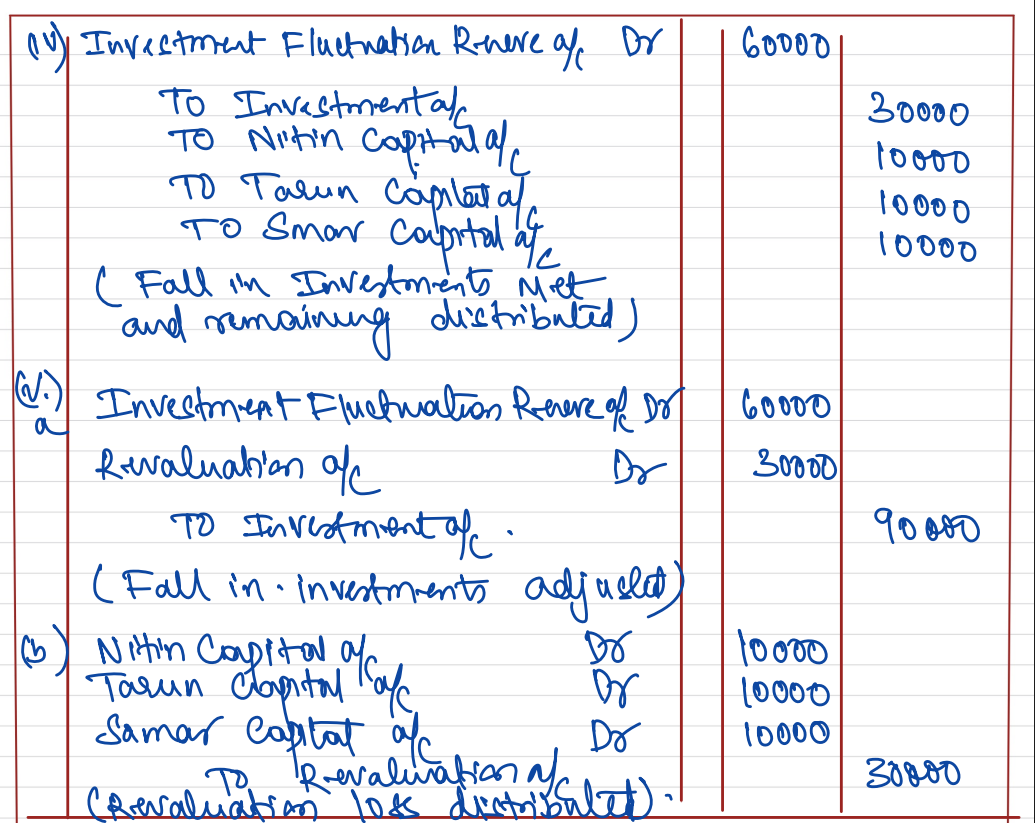 (iv) Investment Fluctuation Reserve a/c Dr 60000
To Investment a/c 30000
To Nitin Capital a/c 10000
To Tarun Capital a/c 10000
To Smar Capital a/c 10000
( Fall in Investments Met
and remaining distributed )
(v.) a Investment Fluctuation Reserve a/c Dr 60000
Revaluation a/c Dr 30000
To Investment a/c . 90000
( Fall in investments adjusted )
(b) Nitin Capital a/c Dr 10000
Tarun Capital a/c Dr 10000
Samar Capital a/c Dr 10000
To Revaluation a/c 30000
(Revaluation loss distributed).